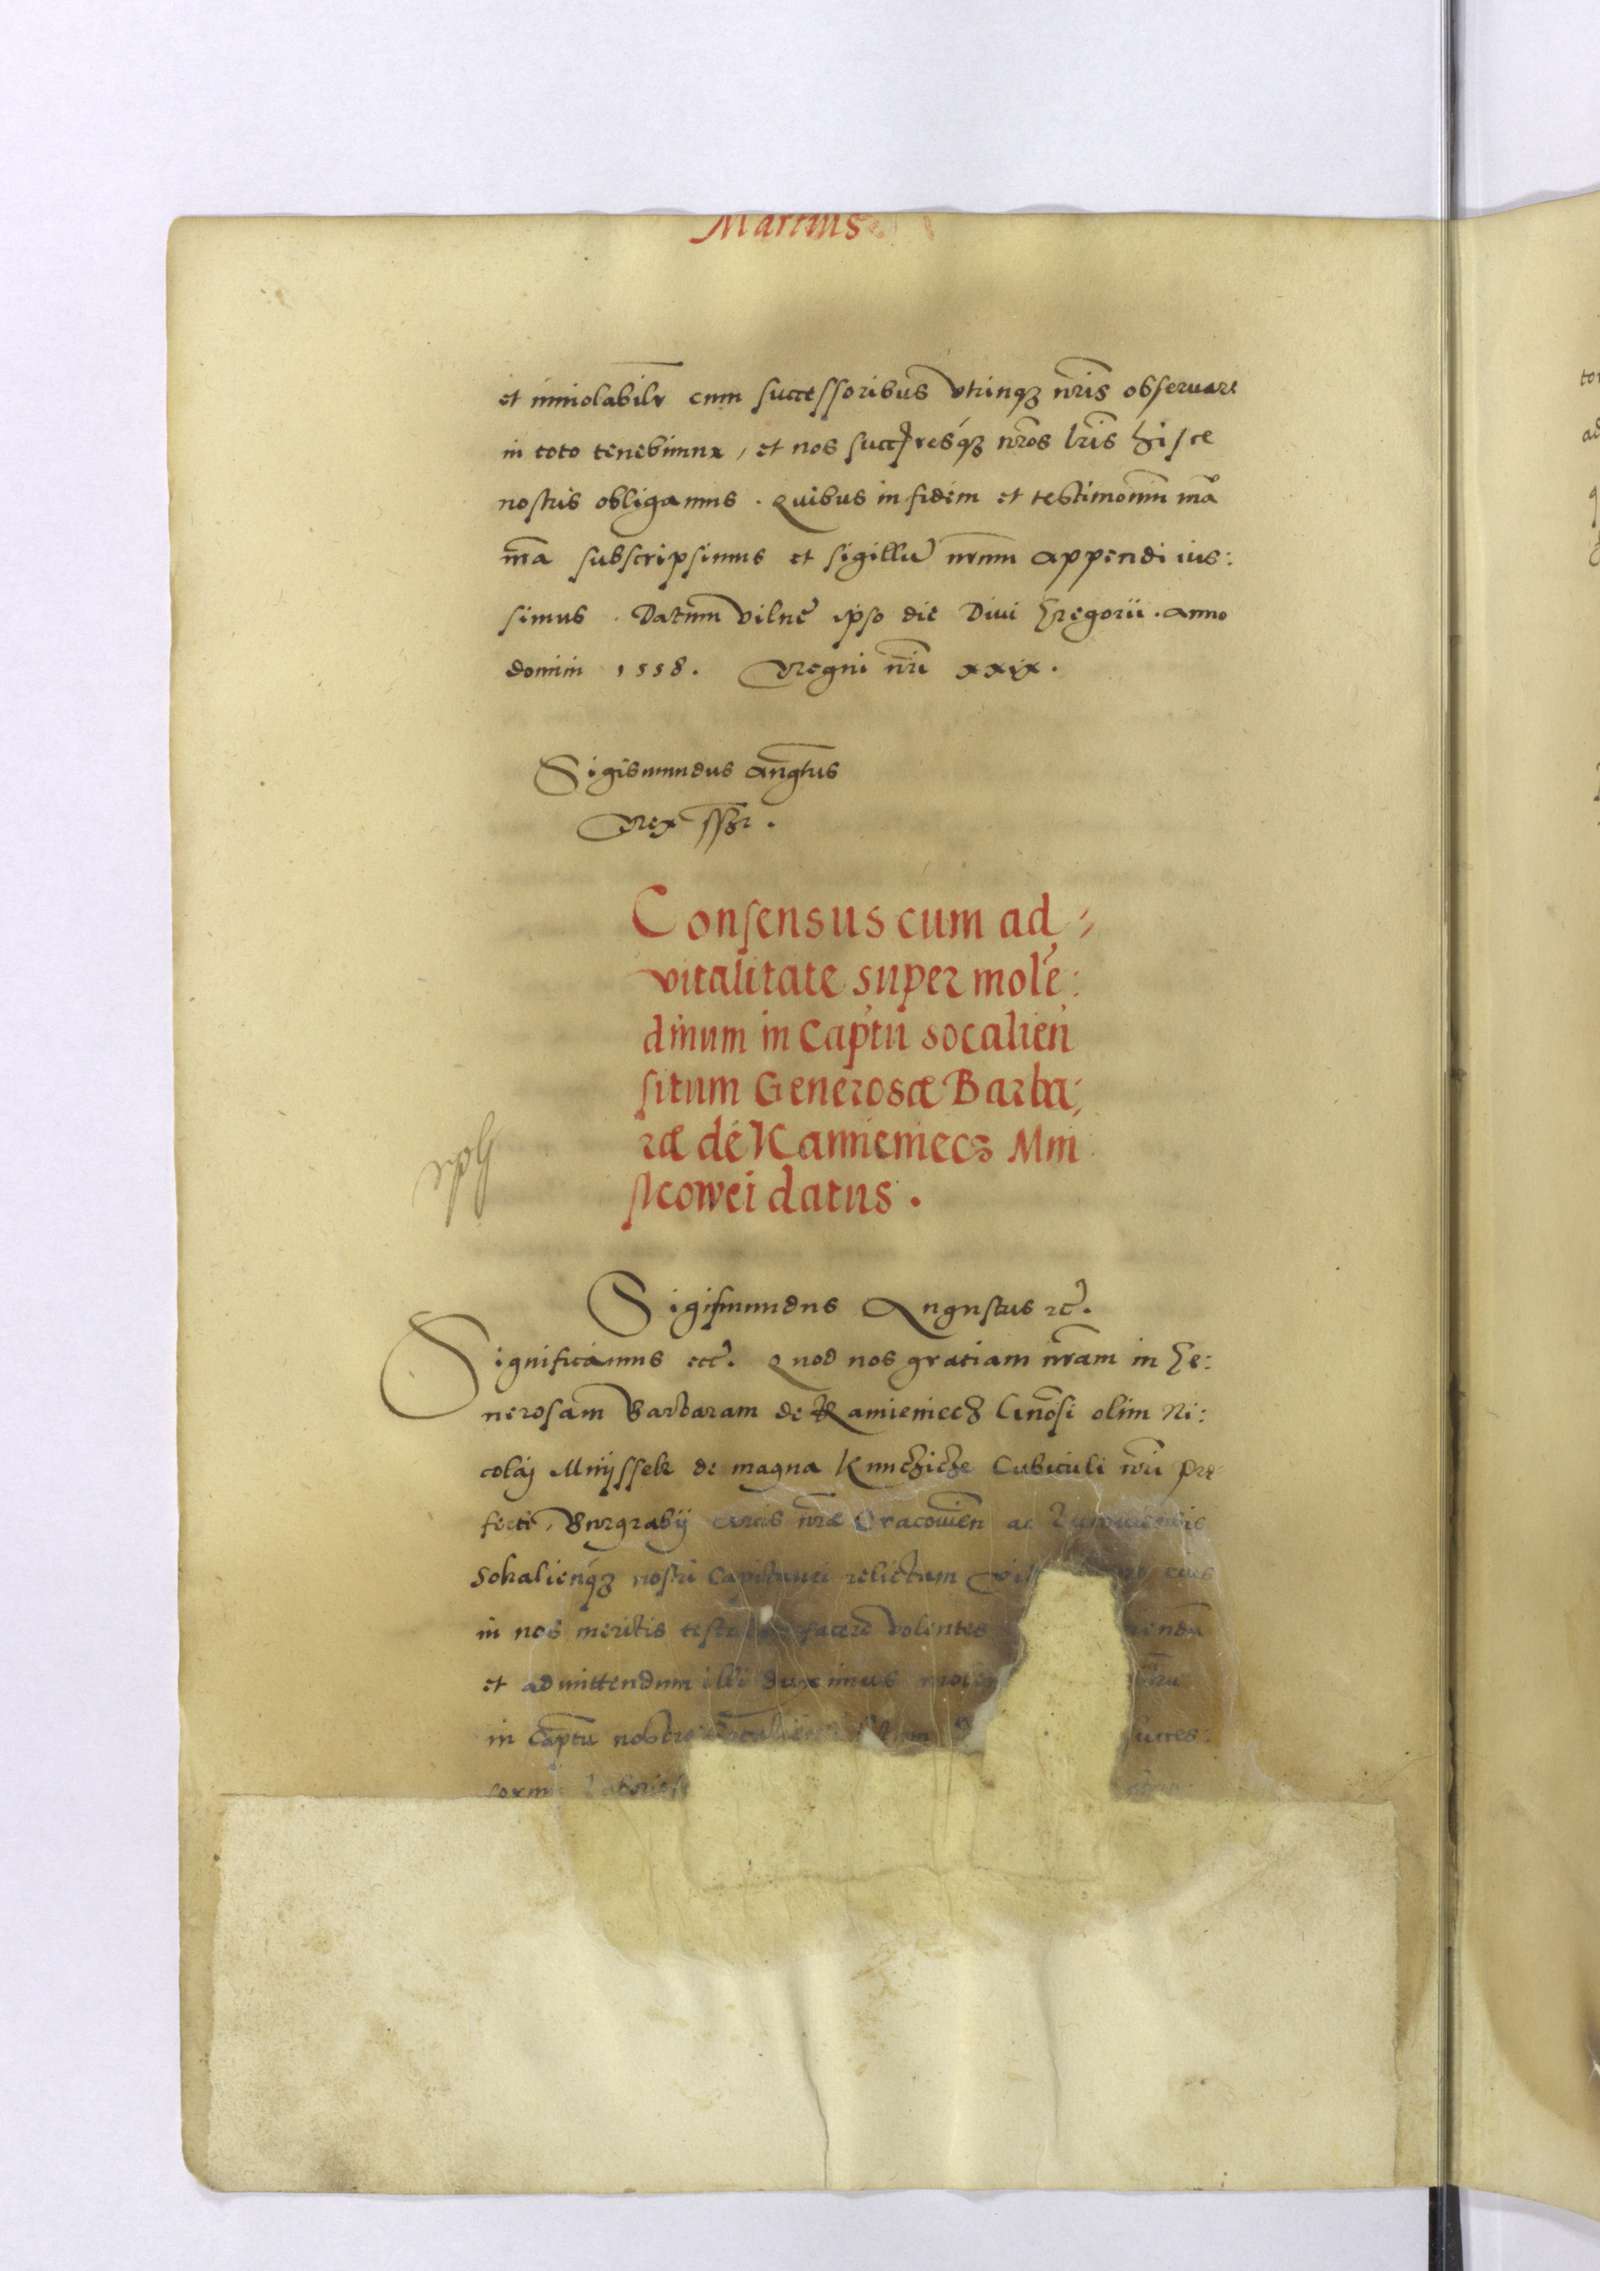 Martius
et inuiolabilr cum successoribus vtrinq3 nris obseruare
in toto tenebimur, et nos succresq3 nros lris hisce
nostris obligamus. Quibus in fidem et testimonium manu
nra subscripsimus et sigillu nrum appendi ius:
simus. Datum Vilne ipso die Divi Gregorii. anno
domini 1558. Regni nri xxix.
Sigismundus Augtus
Rex sszt.
Consensus cum ad,
vitalitate super mole:
dinum in Captu socalien
situm Generosæ Barba:
ræ de Kamieniecz Mni
scowei datus.
Sigismundus Augustus etc.
Significamus etc. Quod nos gratiam nram in Ge:
nerosam Barbaram de Kamieniecz Gnosi olim Ni:
colaj Mnijssek de magna Kunchiche Cubiculi nri pre
fecti, Burgrabij arcis nræ Cracovien ac
Sokalienq3 nostri Capitanei relictam eius
in nos meritis facere volentes
et admittendum illi duximus
in Captu nostro succes: